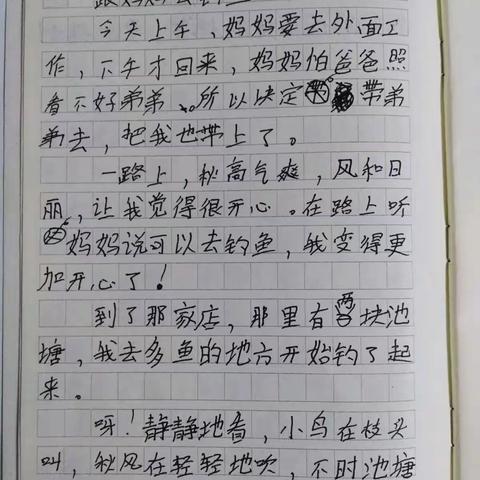 跟妈妈去钓
今天上午，妈妈要去外面工
作，下午才回来，妈妈怕爸爸照
看不好弟弟、所以决定带弟
弟去，把我也带上了。
一路上，秋高气爽，风和日
丽，让我觉得很开心。在路上听
妈妈说可以去钓鱼，我变得更
加开心了！
到了那家店，那里有两块池
塘，我去多鱼的地方开始钓了起
来。
呀！静静地看，小鸟在枝头
叫，秋风在轻轻地吹，不时池塘